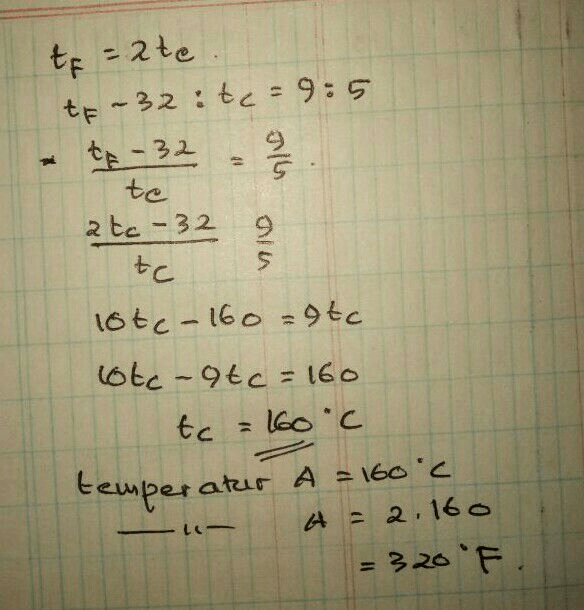 t_F = 2t_C.
t_F - 32 : t_C = 9 : 5
- \frac{t_F - 32}{t_C} = \frac{9}{5}.
\frac{2t_C - 32}{t_C} \frac{9}{5}
10t_C - 160 = 9t_C
10t_C - 9t_C = 160
t_C = 160°C
temperatur A = 160°C
—〃— A = 2.160
= 320°F.